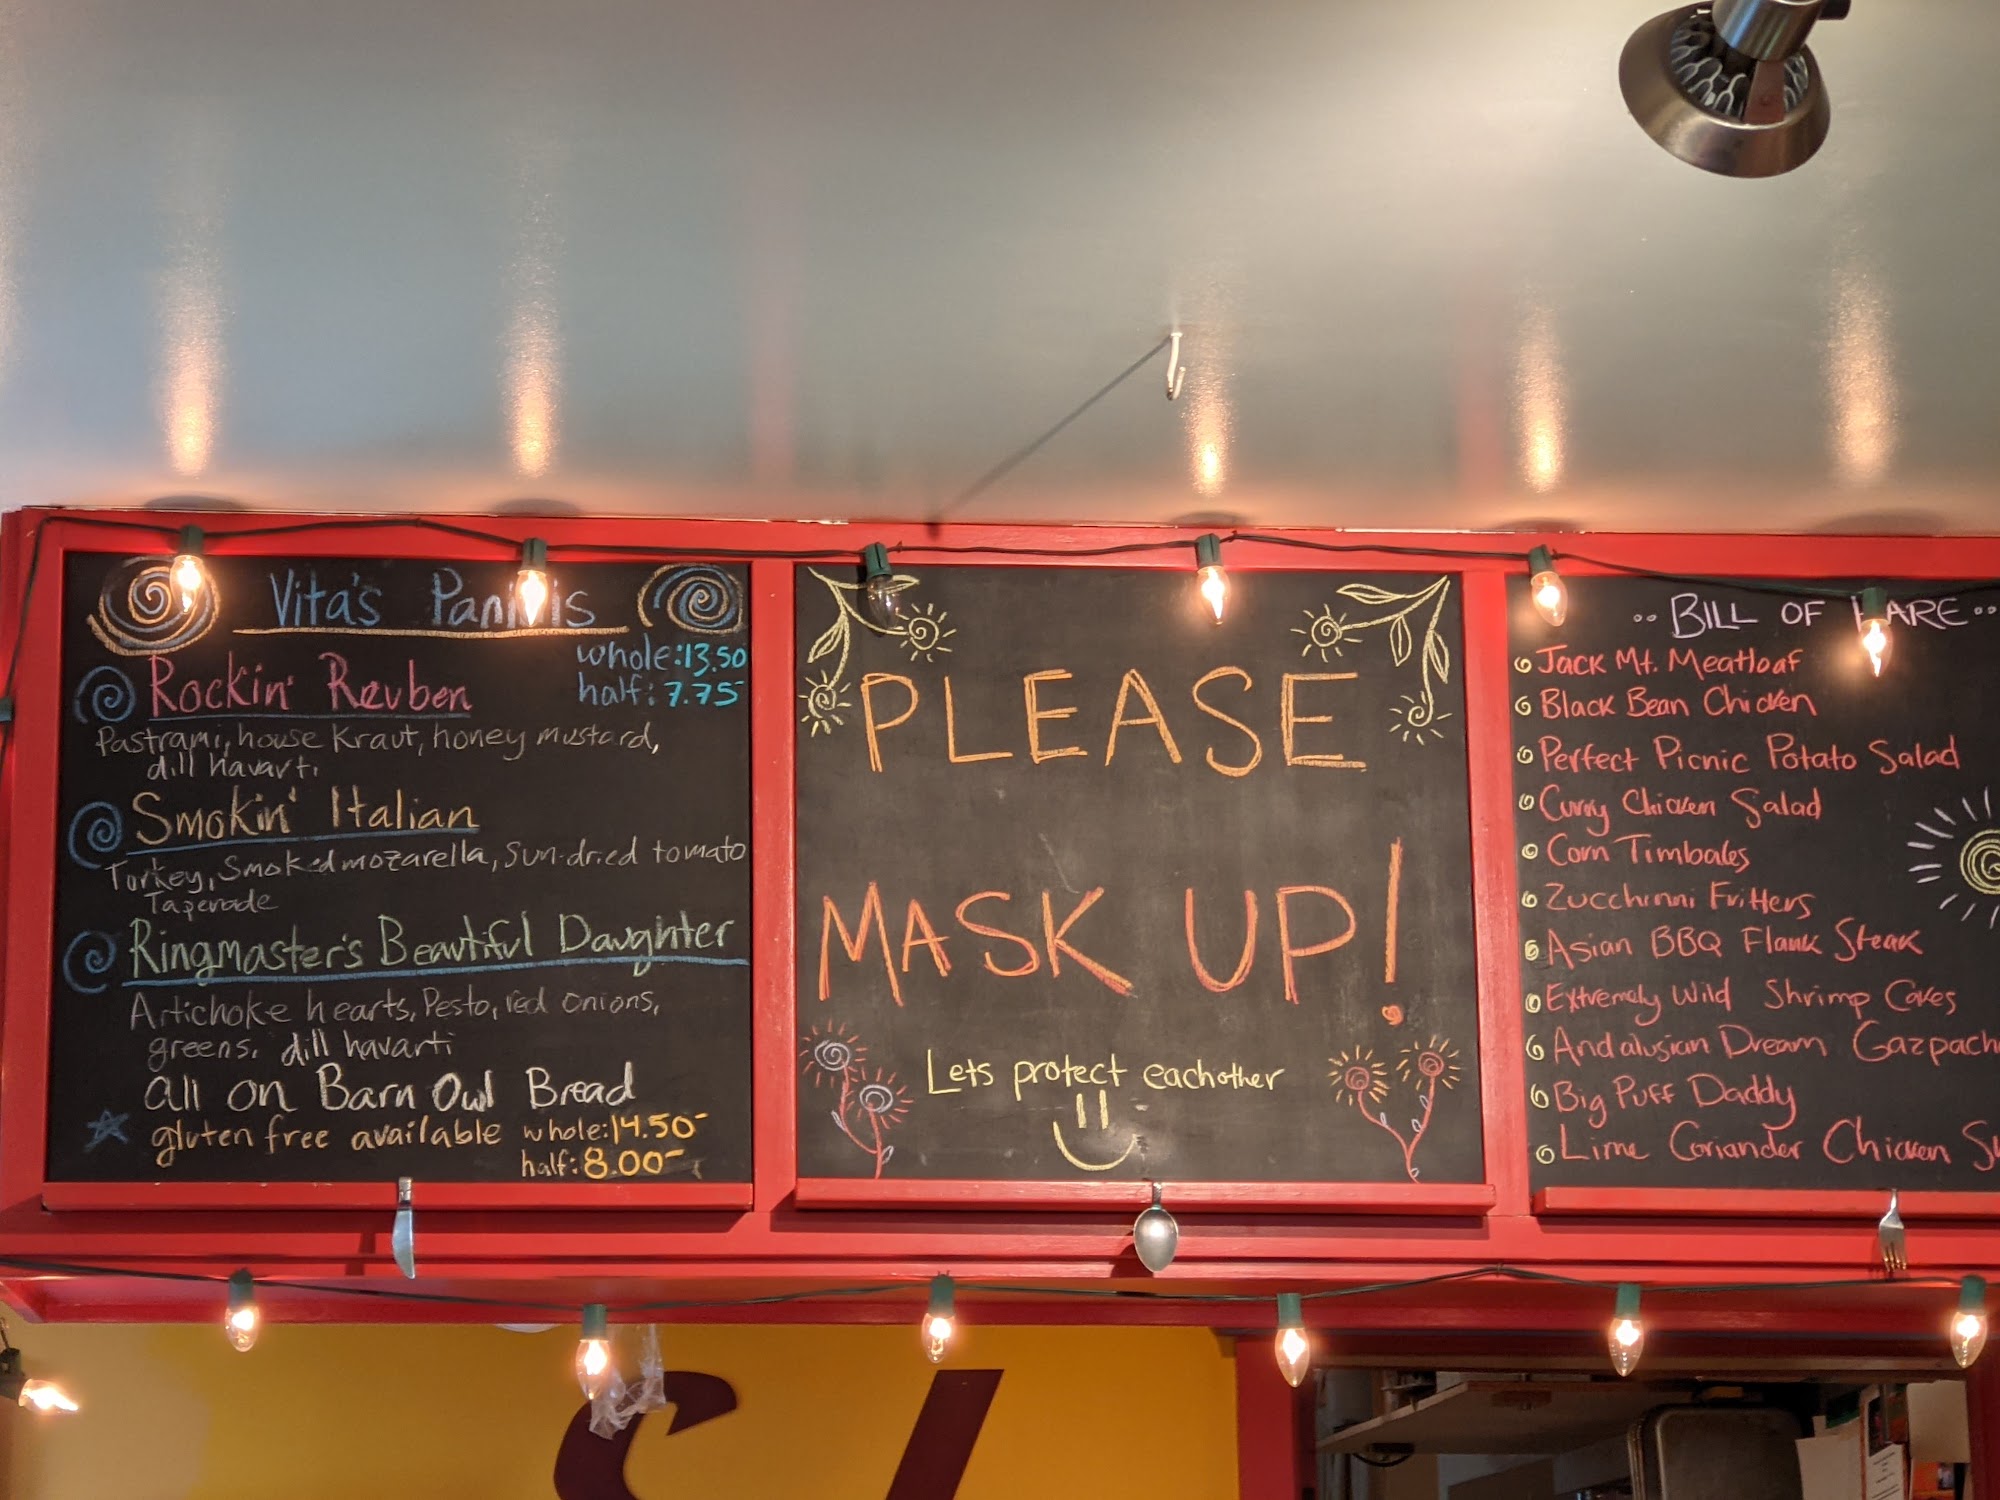 Vita's Paninis
whole:13.50
half: 7.75
Rockin' Reuben
Pastrami, house Kraut, honey mustard,
dill havarti
Smokin' Italian
Turkey, Smoked mozarella, Sun-dried tomato
Tapenade
Ringmaster's Beautiful Daughter
Artichoke hearts, Pesto, red onions,
greens, dill havarti
all on Barn Owl Bread
gluten free available whole:14.50
half: 8.00
PLEASE
MASK UP!
Lets protect eachother
BILL OF FARE
Jack Mt. Meatloaf
Black Bean Chicken
Perfect Picnic Potato Salad
Curry Chicken Salad
Corn Timbales
Zucchinni Fritters
Asian BBQ Flank Steak
Extremely Wild Shrimp Cakes
Andalusian Dream Gazpach
Big Puff Daddy
Lime Coriander Chicken